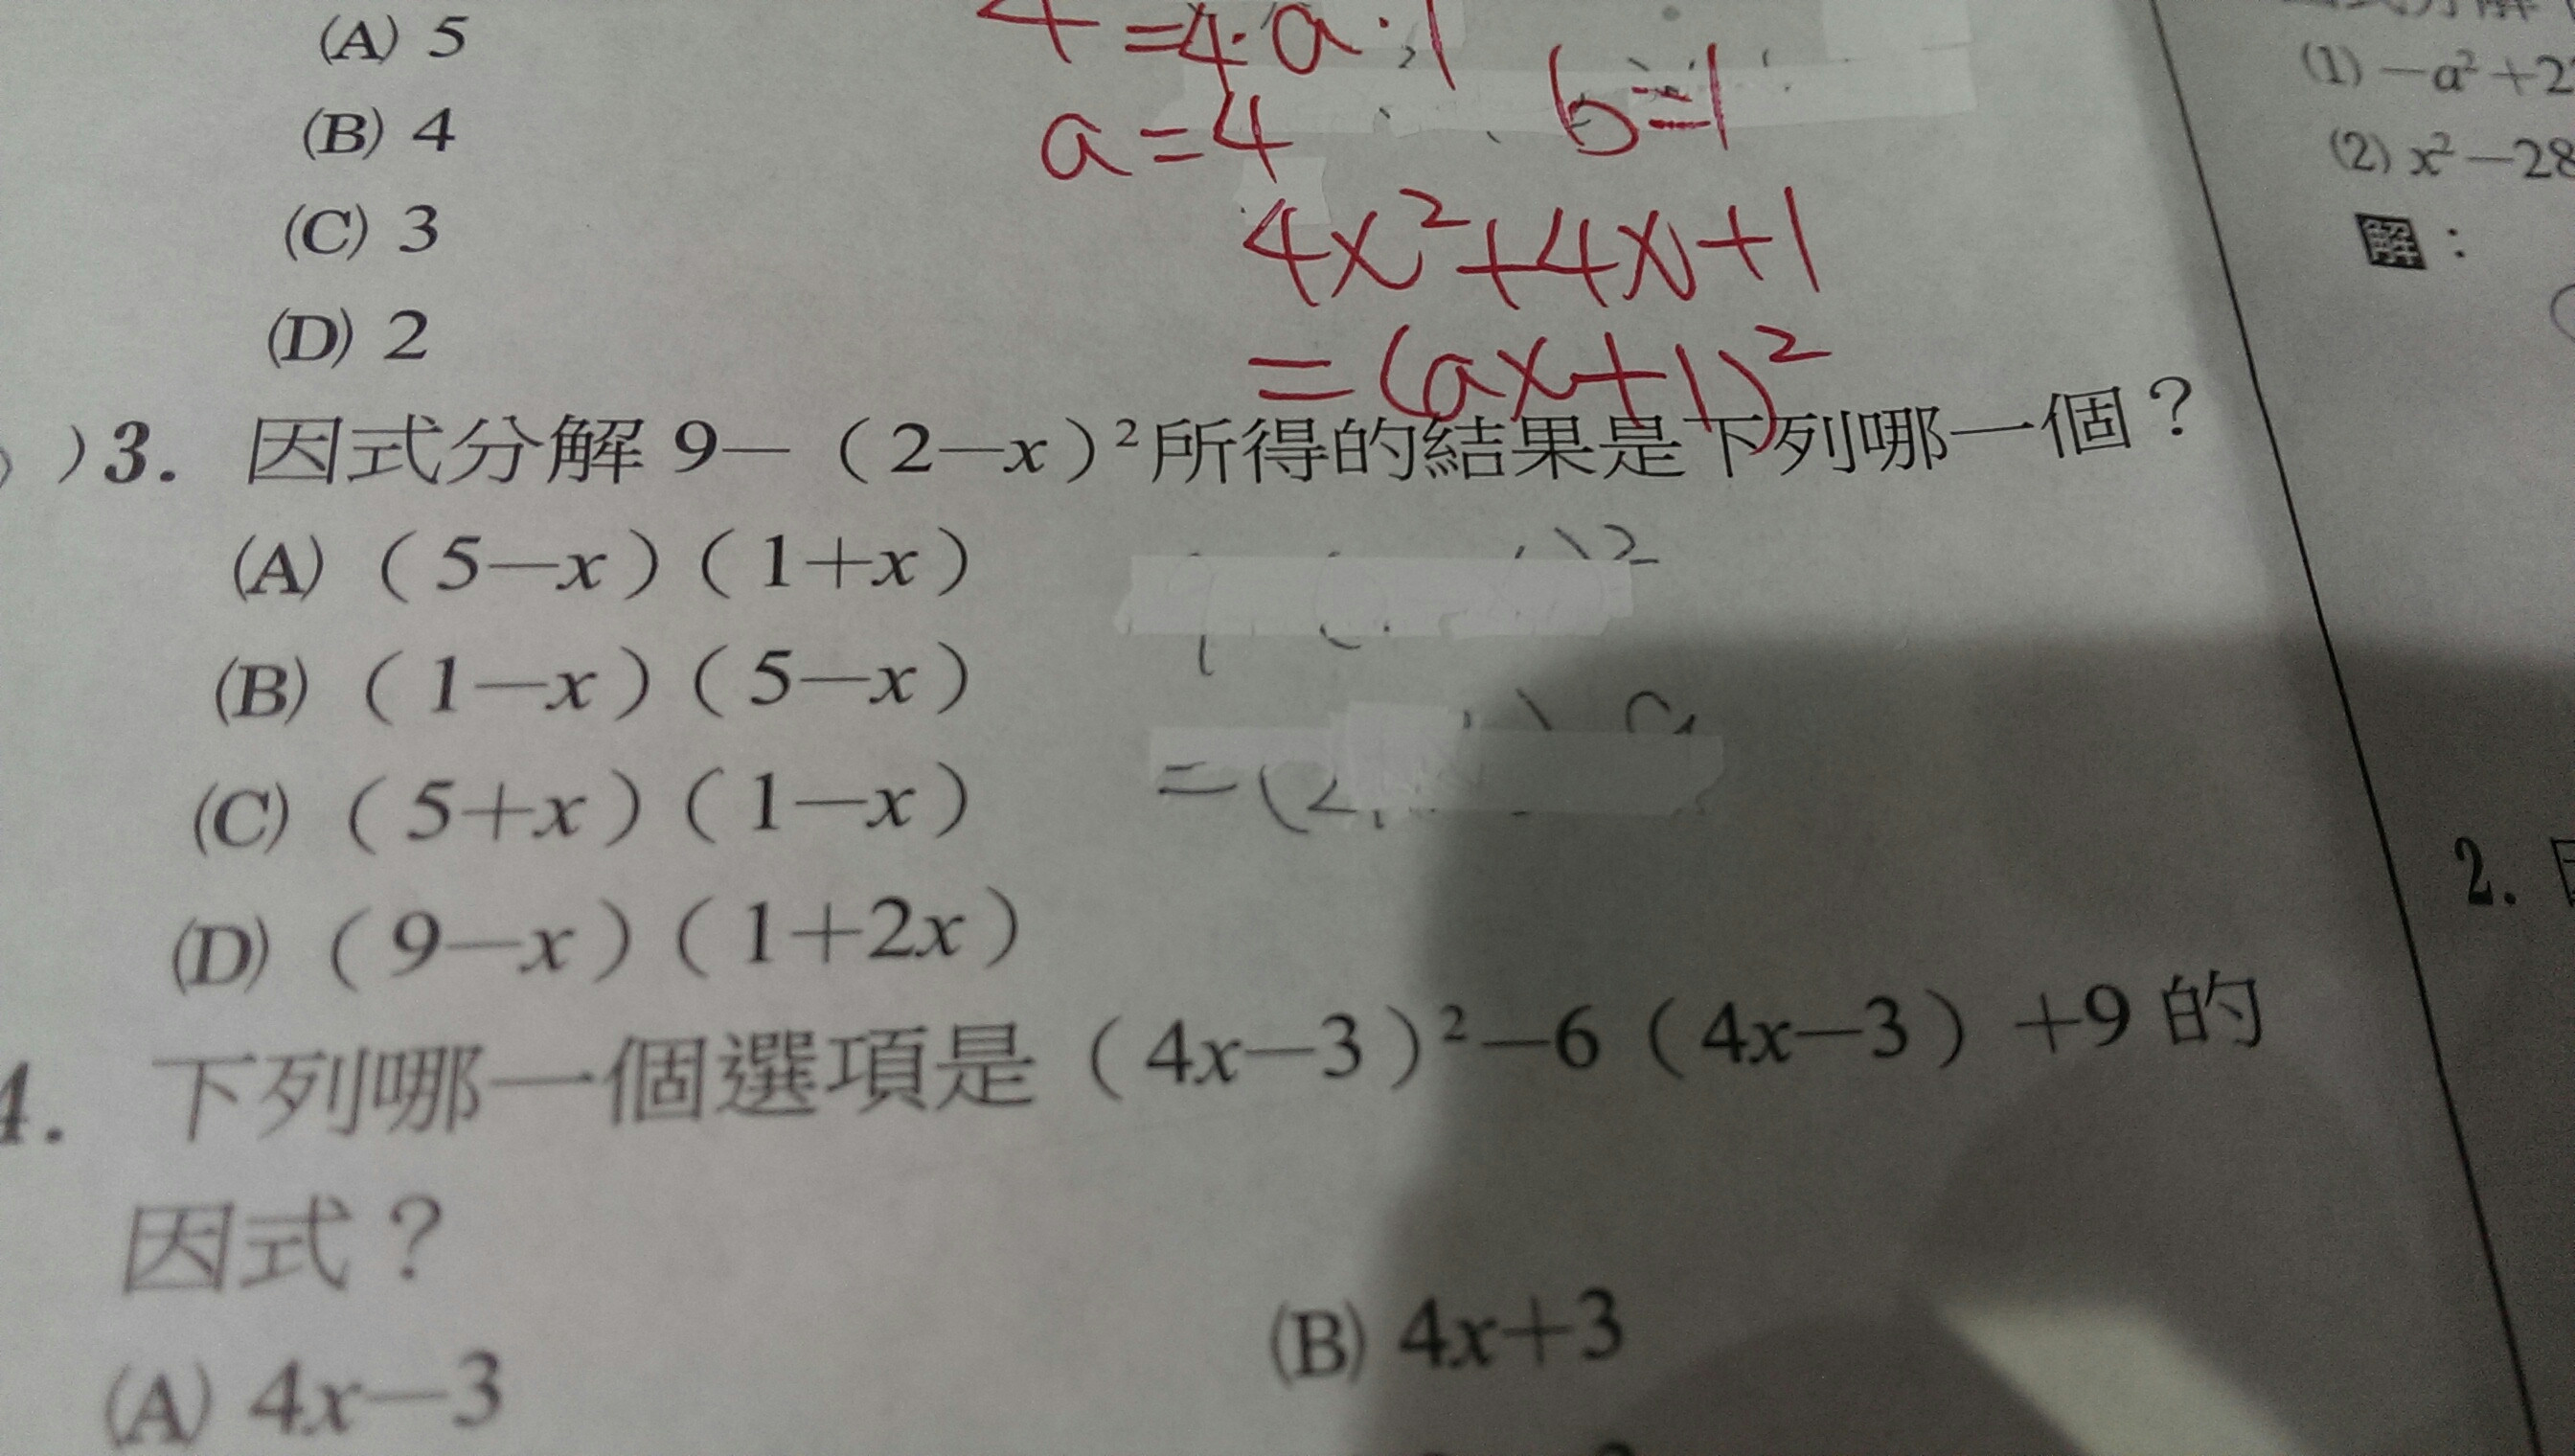 (A) 5
(B) 4
(C) 3
(D) 2
=4·a·1
a=4
b=1
4x²+4x+1
=(ax+1)²
)3. 因式分解 9—(2—x)²所得的結果是下列哪一個？
(A) (5—x)(1+x)
(B) (1—x)(5—x)
(C) (5+x)(1—x)
(D) (9—x)(1+2x)
4. 下列哪一個選項是(4x—3)²—6(4x—3)+9 的
因式？
(A) 4x—3
(B) 4x+3
(1) —a²+2
(2) x²—28
解：
2.